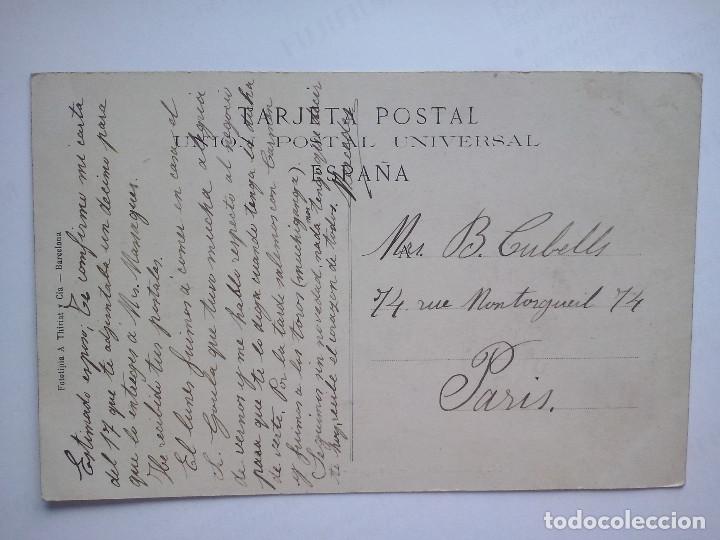 TARJETA POSTAL
UNION POSTAL UNIVERSAL
ESPAÑA
Fototipia A Thiriat y Cia — Barcelona
Estimado esposo; Te confirmo mi carta
del 17 que te adjuntaba un decimo para
que lo entregues a Mrs. Manegues.
He recibido tus postales.
El lunes fuimos a comer en casa el
Sr. Goula que tuvo mucha alegria
de vernos y me hablo respecto al negocio
para que te lo diga cuando tenga la dicha
de verte. Por la tarde salimos con Carmen
y fuimos a los toros (mochiganga)
Seguimos sin novedad, nada mas tengo que decir
te hoy, recibe el corazon de todos.
Mercedes
Mrs. B. Cubells
74 rue Montorgueil 74
Paris.
todocoleccion.net